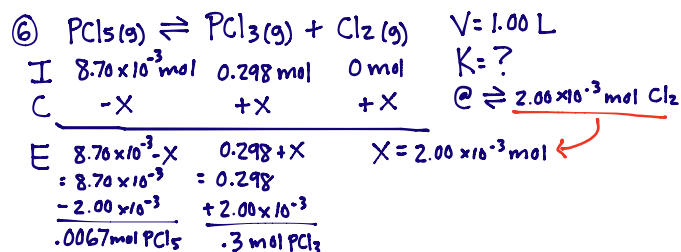 ⑥ PCl5(g) ⇌ PCl3(g) + Cl2(g) V = 1.00 L
I 8.70x10⁻³mol 0.298 mol 0 mol K = ?
C -X +X +X @ ⇌ 2.00x10⁻³ mol Cl2
E 8.70x10⁻³-X 0.298+X X = 2.00x10⁻³mol
= 8.70x10⁻³ = 0.298
- 2.00x10⁻³ + 2.00x10⁻³
.0067mol PCl5 .3 mol PCl3